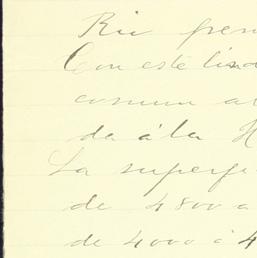 Con este lin
comun a
da á la H
La superfi
de 4800 a
de 4000 á 4